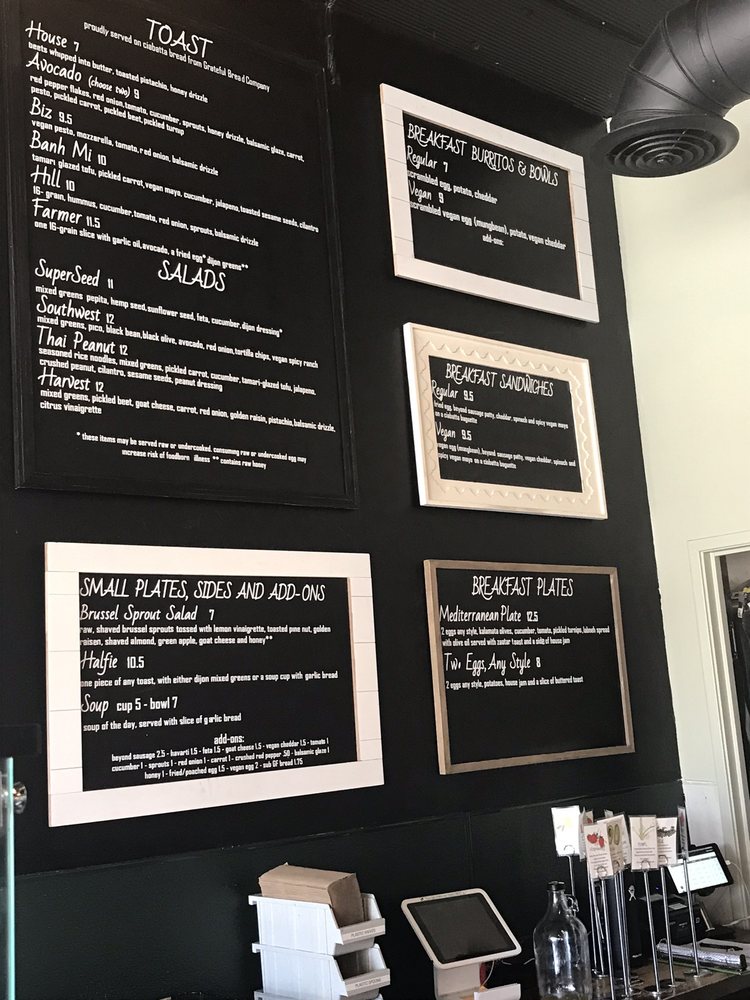 TOAST
proudly served on ciabatta bread from Grateful Bread Company
House 7
beets whipped into butter, toasted pistachio, honey drizzle
Avocado (choose two) 9
red pepper flakes, red onion, tomato, cucumber, sprouts, honey drizzle, balsamic glaze, carrot,
pesto, pickled carrot, pickled beet, pickled turnip
Biz 9.5
vegan pesto, mozzarella, tomato, red onion, balsamic drizzle
Banh Mi 10
tamari glazed tofu, pickled carrot, vegan mayo, cucumber, jalapeno, toasted sesame seeds, cilantro
Hill 10
16-grain, hummus, cucumber, tomato, red onion, sprouts, balsamic drizzle
Farmer 11.5
one 16-grain slice with garlic oil, avocado, a fried egg* dijon greens**
SALADS
SuperSeed 11
mixed greens pepita, hemp seed, sunflower seed, feta, cucumber, dijon dressing*
Southwest 12
mixed greens, pico, black bean, black olive, avocado, red onion, tortilla chips, vegan spicy ranch
Thai Peanut 12
seasoned rice noodles, mixed greens, pickled carrot, cucumber, tamari-glazed tofu, jalapeno,
crushed peanut, cilantro, sesame seeds, peanut dressing
Harvest 12
mixed greens, pickled beet, goat cheese, carrot, red onion, golden raisin, pistachio, balsamic drizzle,
citrus vinaigrette
* these items may be served raw or undercooked. consuming raw or undercooked egg may
increase risk of foodborn illness ** contains raw honey
BREAKFAST BURRITOS & BOWLS
Regular 7
scrambled egg, potato, cheddar
Vegan 9
scrambled vegan egg (mungbean), potato, vegan cheddar
add-ons:
BREAKFAST SANDWICHES
Regular 9.5
fried egg, beyond sausage patty, cheddar, spinach and spicy vegan mayo
on a ciabatta baguette
Vegan 9.5
vegan egg (mungbean), beyond sausage patty, vegan cheddar, spinach and
spicy vegan mayo on a ciabatta baguette
SMALL PLATES, SIDES AND ADD-ONS
Brussel Sprout Salad 7
raw, shaved brussel sprouts tossed with lemon vinaigrette, toasted pine nut, golden
raisen, shaved almond, green apple, goat cheese and honey**
Halfie 10.5
one piece of any toast, with either dijon mixed greens or a soup cup with garlic bread
Soup cup 5 - bowl 7
soup of the day, served with slice of garlic bread
add-ons:
beyond sausage 2.5 - havarti 1.5 - feta 1.5 - goat cheese 1.5 - vegan cheddar 1.5 - tomato 1
cucumber 1 - sprouts 1 - red onion 1 - carrot 1 - crushed red pepper .50 - balsamic glaze 1
honey 1 - fried/poached egg 1.5 - vegan egg 2 - sub GF bread 1.75
BREAKFAST PLATES
Mediterranean Plate 12.5
2 eggs any style, kalamata olives, cucumber, tomato, pickled turnips, labneh spread
with olive oil served with zaatar toast and a side of house jam
Two Eggs, Any Style 8
2 eggs any style, potatoes, house jam and a slice of buttered toast
PLASTIC KNIVES
PLASTIC SPOONS